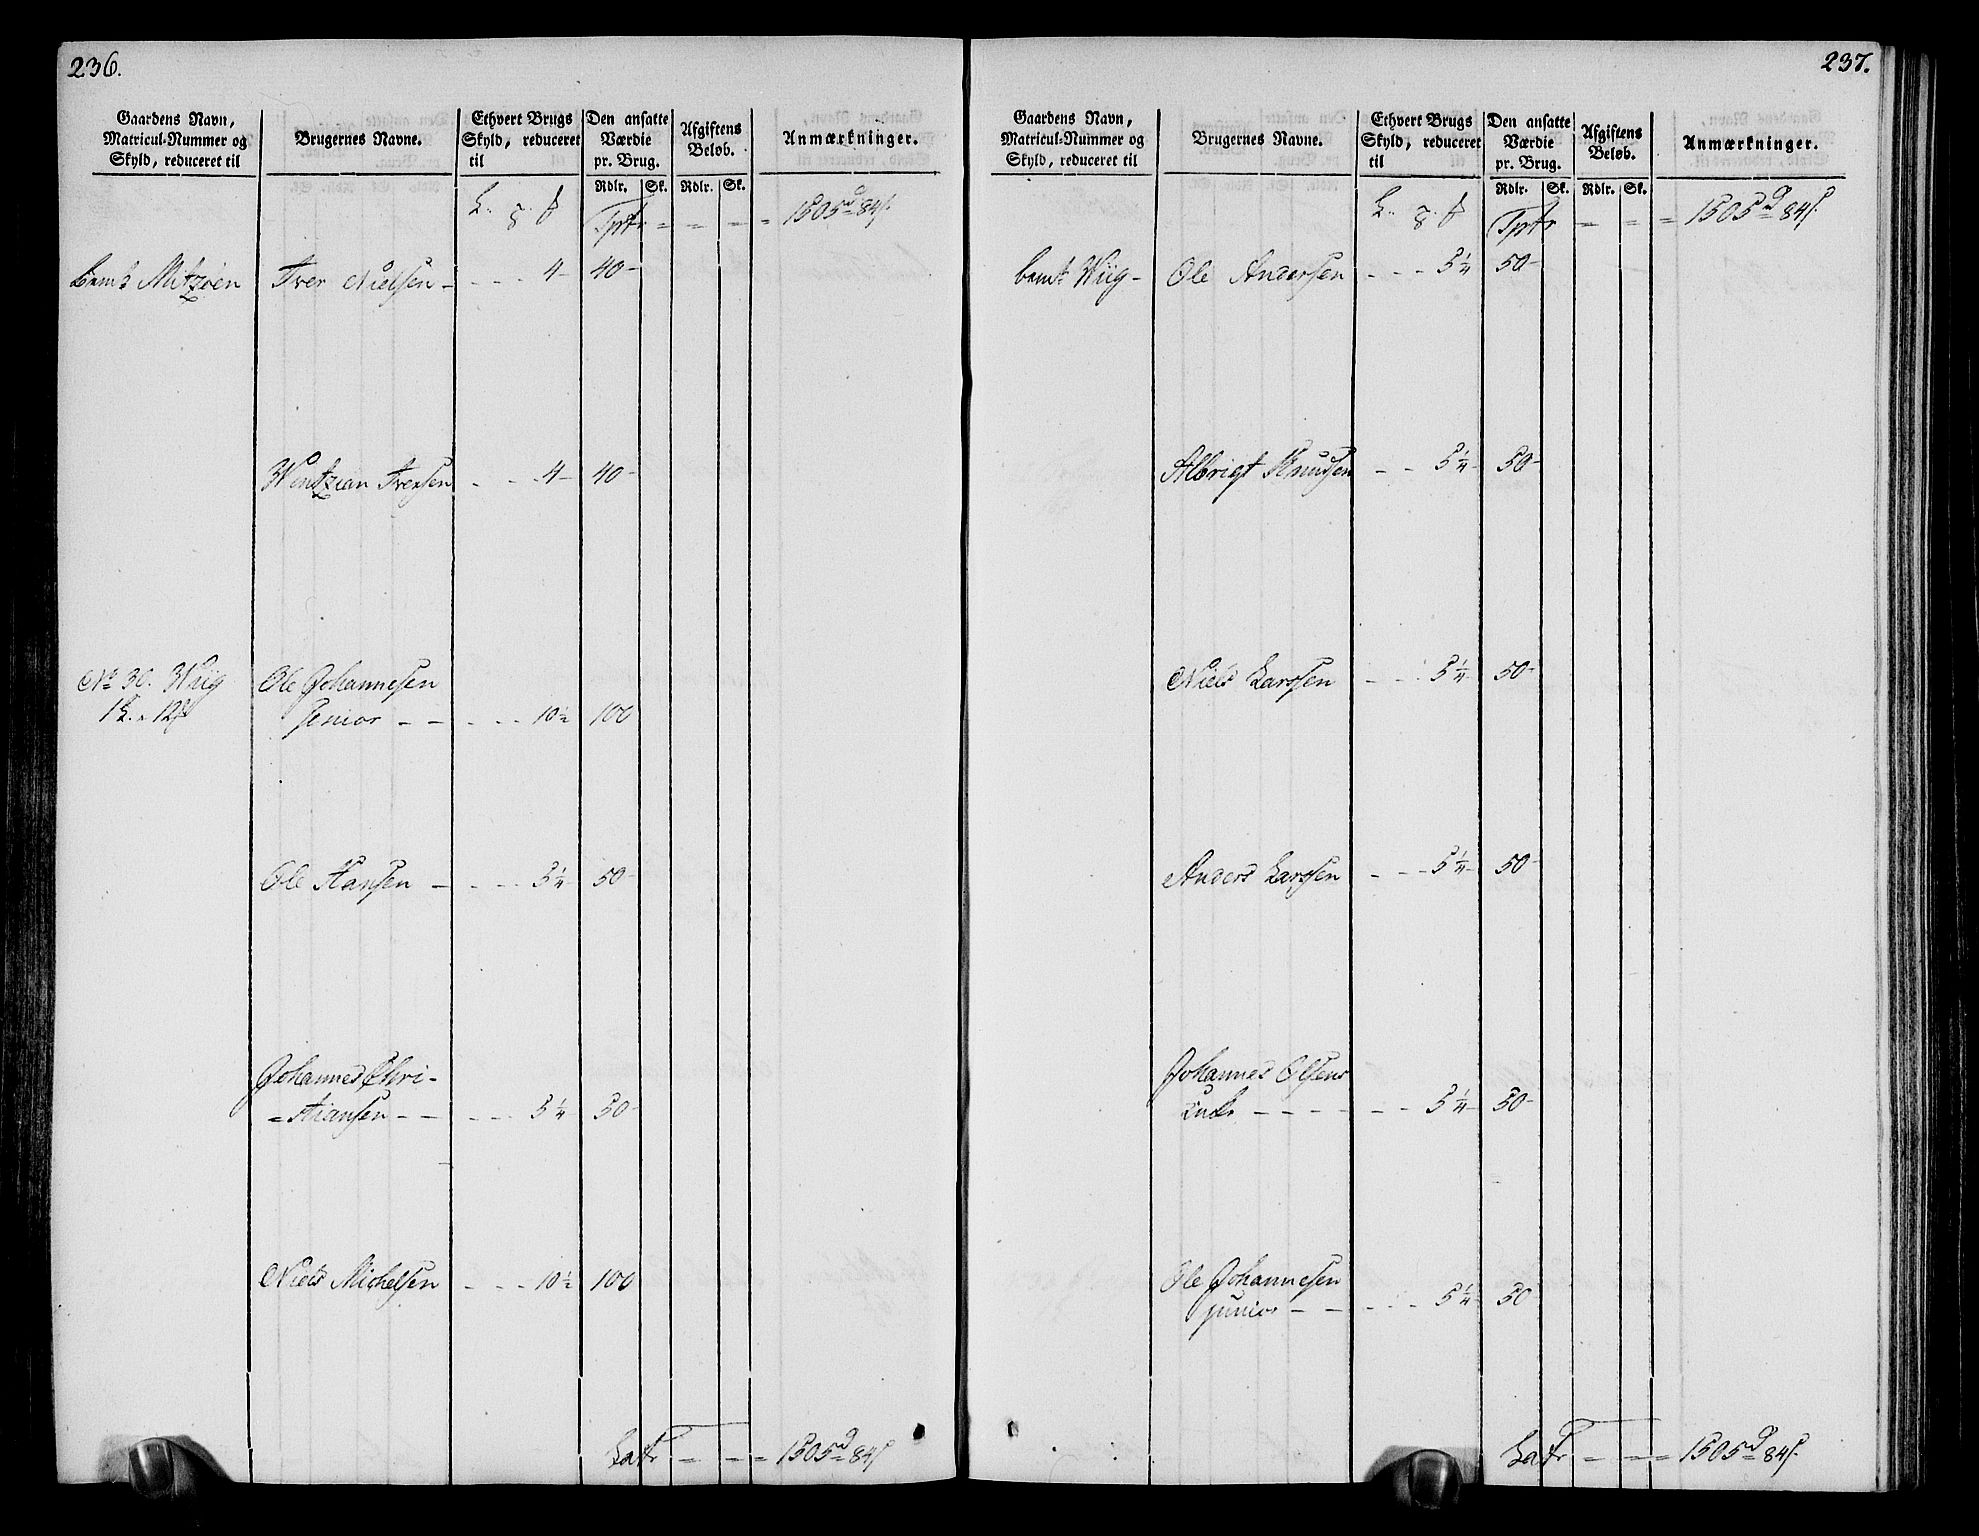 236.
Gaardens Navn, Matricul-Nummer og Skyld, reduceret til
Brugernes Navne.
Ethvert Brugs Skyld, reduceret til
Den ansatte Værdie pr. Brug.
Afgiftens Beløb.
Anmærkninger.
Rdlr. Sk. Rdlr. Sk.
Tptr = - - = 1505d 84s.
Nielsen - - - - 4 - 40 -
Wentzian Iversen - - 4 - 40 -
No 30. Wiig Ole Johannesen
senior - - - - - 10½ 100
Ole Hansen - - - - 5¼ 50 -
Johannes Chri-
=stiansen - - - - - 5¼ 50 -
Niels Michelsen - - - 10½ 100
Latr = - = 1505d = 84s
237.
Gaardens Navn, Matricul-Nummer og Skyld, reduceret til
Brugernes Navne.
Ethvert Brugs Skyld, reduceret til
Den ansatte Værdie pr. Brug.
Afgiftens Beløb.
Anmærkninger.
Rdlr. Sk. Rdlr. Sk.
Tptr = = = = 1505d = 84s.
bemt Wiig - Ole Andersen - - - 5¼ 50 -
Albrigt Knudsen - - 5¼ - 50 -
Niels Larssen - - - 5¼ - 50 -
Anders Larssen - - - 5¼ - 50 -
Johannes Olsens
Enke - - - - - - - 5¼ - 50 -
Ole Johannesen
junior - - - - - 5¼ - 50
Latr = = = 1505d = 84s.